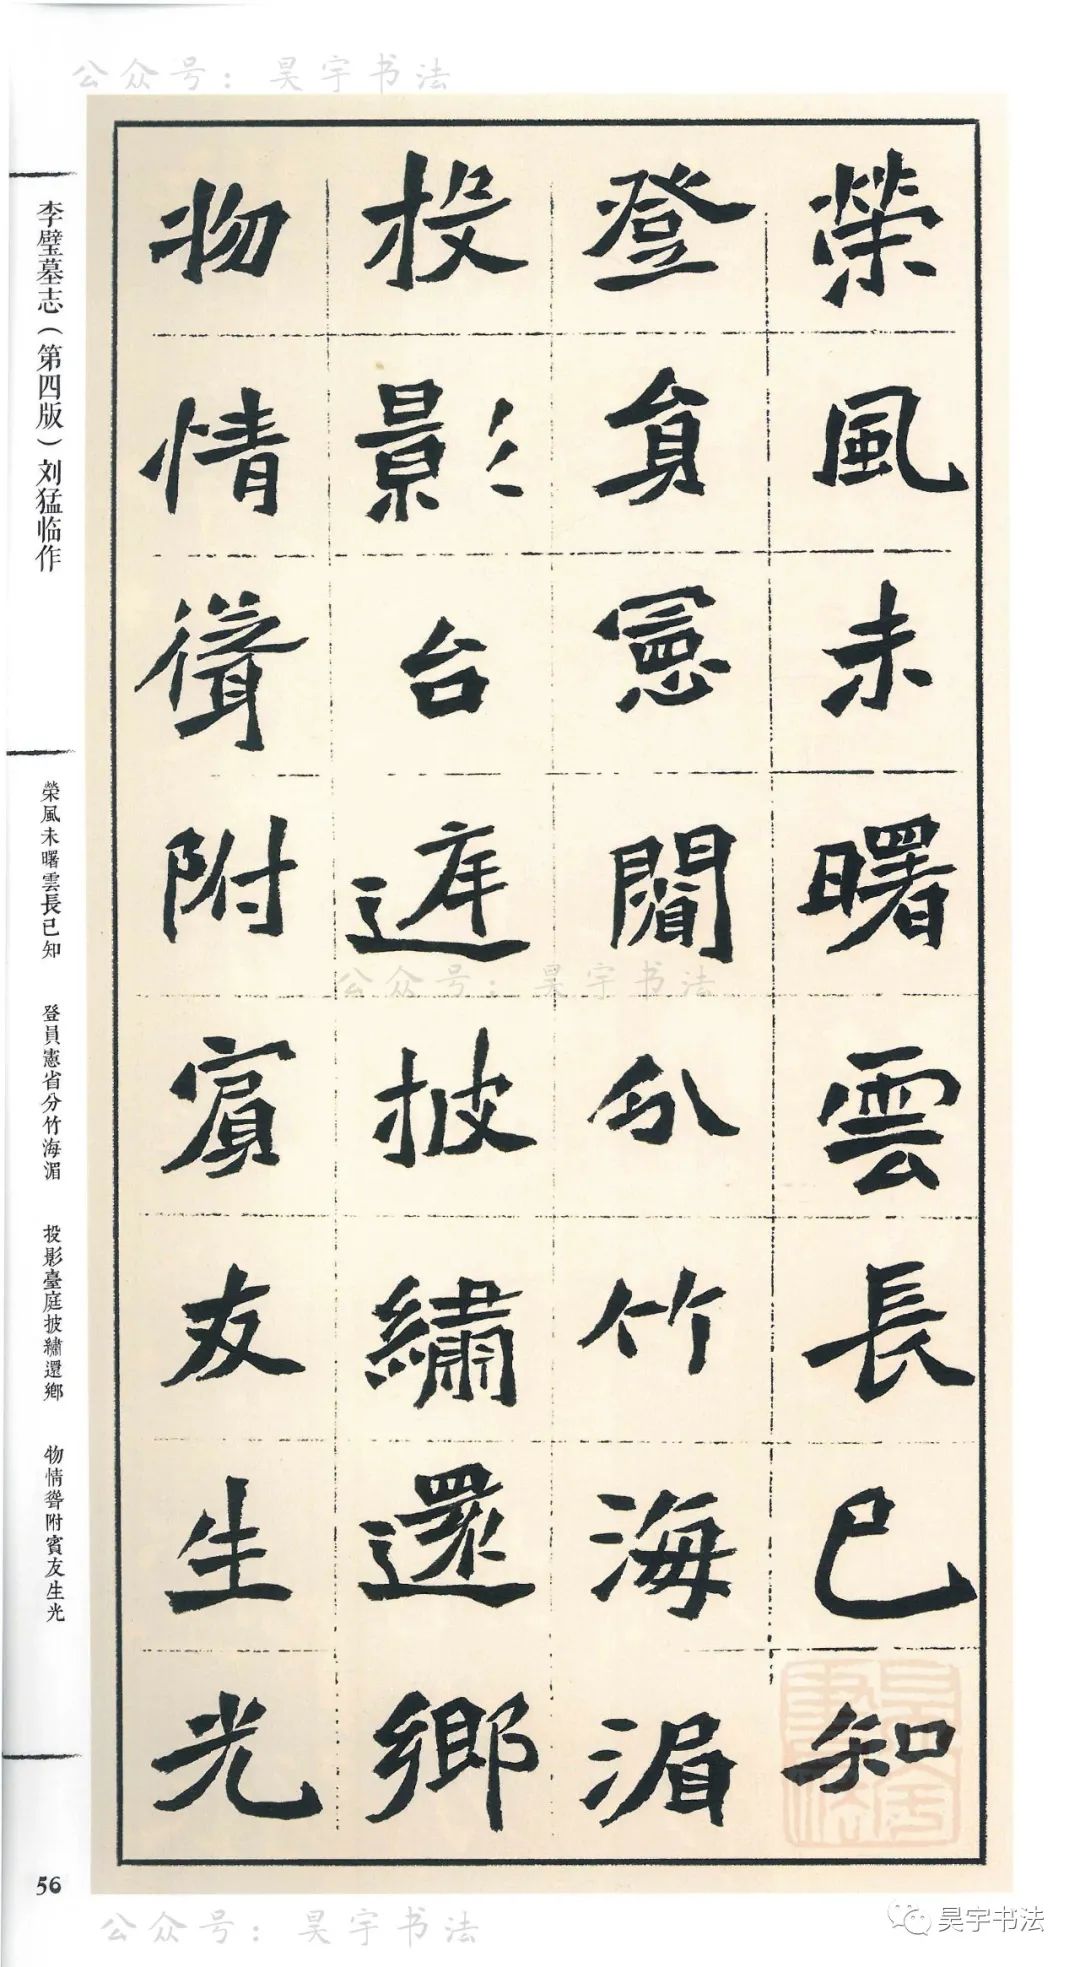 公众号：昊宇书法
榮風未曙雲長已知
登員憲省分竹海湄
投影台庭披繡還鄉
物情聳附賓友生光
李璧墓志（第四版）刘猛临作
榮風未曙雲長已知 登員憲省分竹海湄 投影臺庭披繡還鄉 物情聳附賓友生光
56
公众号：昊宇书法
公众号：昊宇书法
昊宇书法